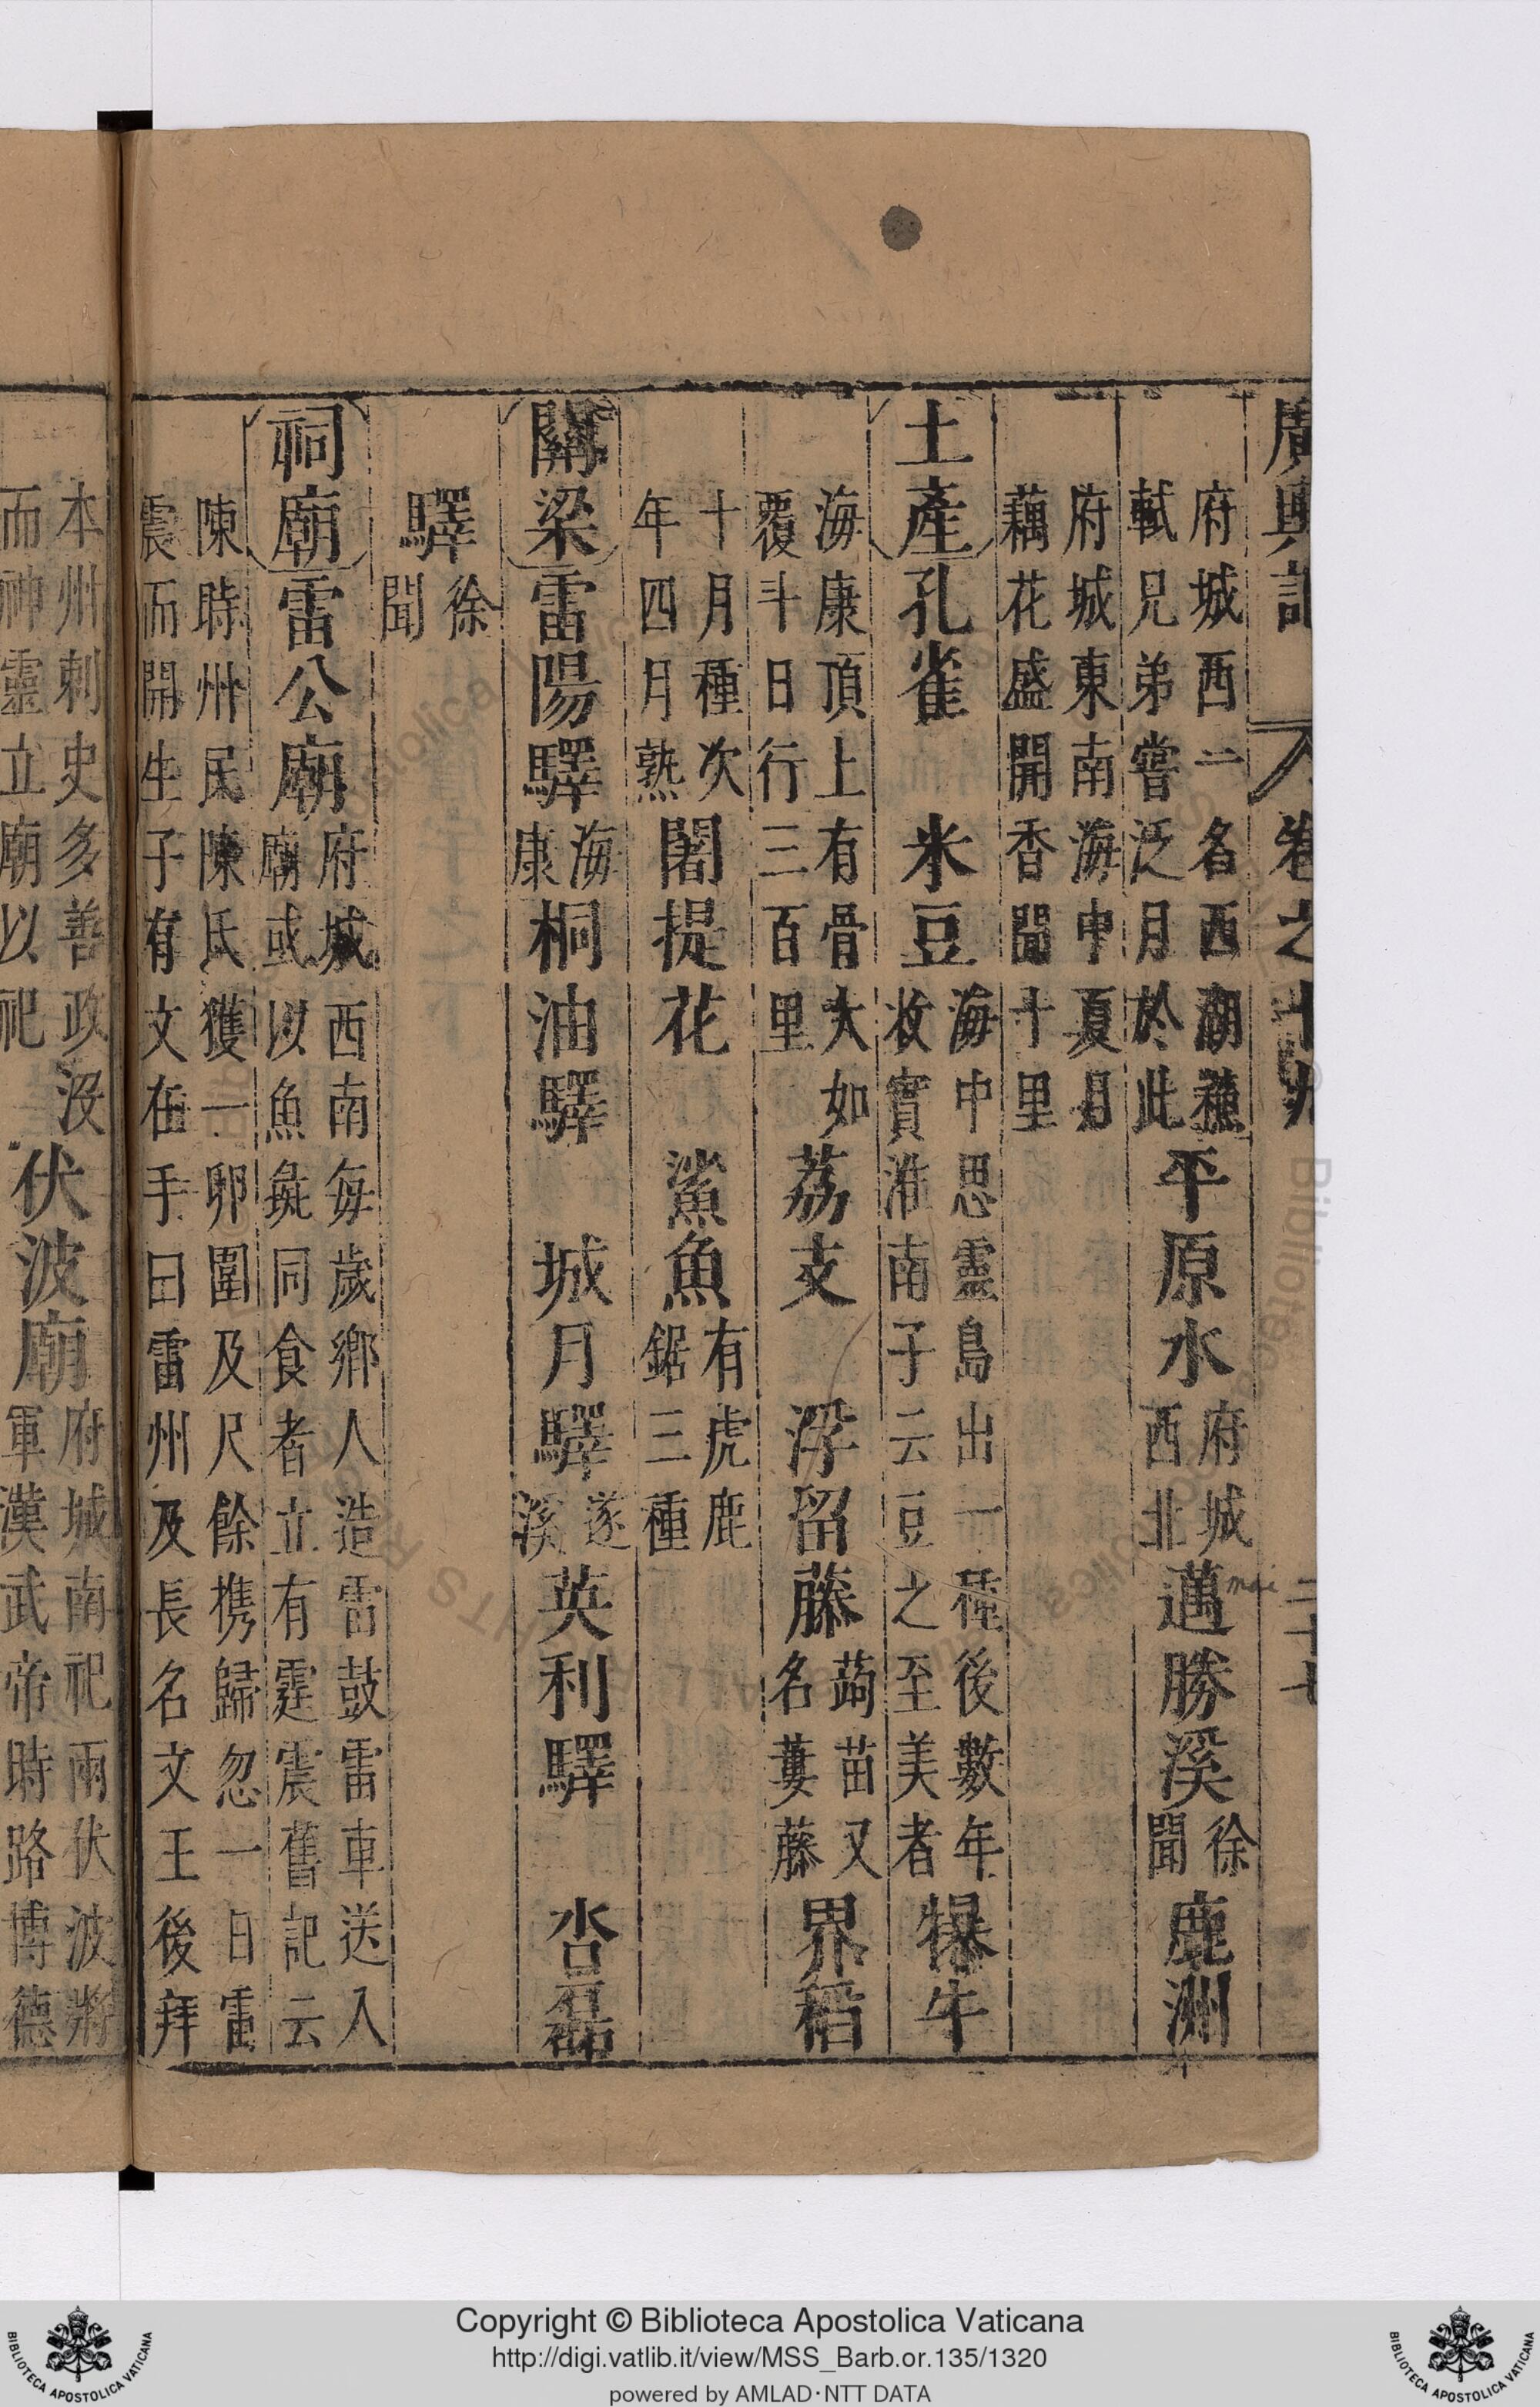 廣輿記 卷之十九 二十七
府城西一名西湖蘇
軾兄弟嘗泛月於此
平原水
府城
西北
邁勝溪
徐
聞
鹿洲
府城東南海中夏月
藕花盛開香聞十里
土產
孔雀 米豆
海中思靈島出一種後數年
收實淮南子云豆之至美者
犦牛
海康項上有骨大如
覆斗日行三百里
荔支 浮留藤
蒟苗又
名蔞藤
界稻
十月種次
年四月熟
闍提花 鯊魚
有虎鹿
鋸三種
關梁
雷陽驛
海
康
桐油驛 城月驛
遂
溪
英利驛 沓磊
驛
徐
聞
祠廟
雷公廟
府城西南每歲鄉人造雷鼓雷車送入
廟或以魚彘同食者立有霆震舊記云
陳時州民陳氏獲一卵圍及尺餘携歸忽一日雷
震而開生子有文在手曰雷州及長名文玉後拜
本州刺史多善政沒
而神靈立廟以祀
伏波廟
府城南祀兩伏波將
軍漢武帝時路博德
mai
Copyright © Biblioteca Apostolica Vaticana
http://digi.vatlib.it/view/MSS_Barb.or.135/1320
powered by AMLAD·NTT DATA
BIBLIOTECA APOSTOLICA VATICANA
BIBLIOTECA APOSTOLICA VATICANA